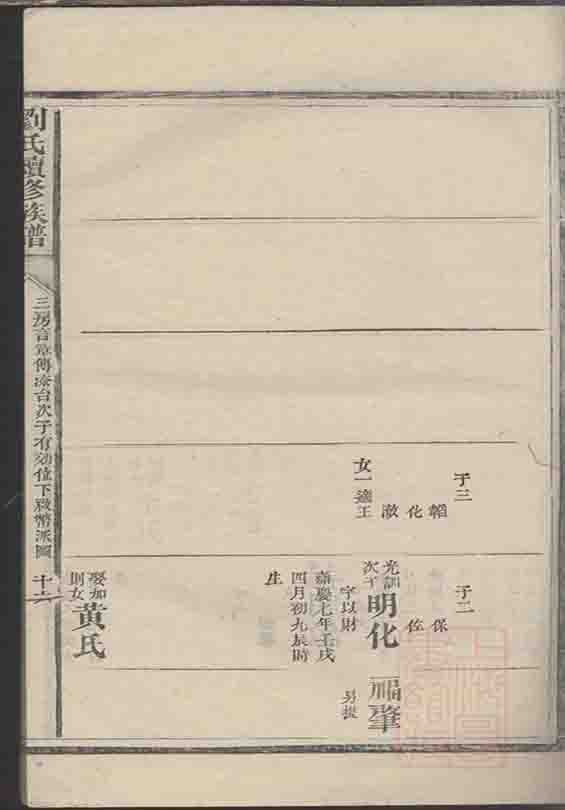 劉氏續修族譜
三房言章傳
次子有効位下
派圖
十六
子三
韜
化
澂
女一適王
子二
保
佐
光訓次子
明化
字以財
嘉慶七年壬戌
四月初九辰時
生
娶如則女
黃氏
福肇
另提